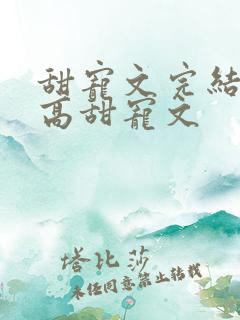 甜寵文完結
高甜寵文
塔比莎
未經同意禁止轉載